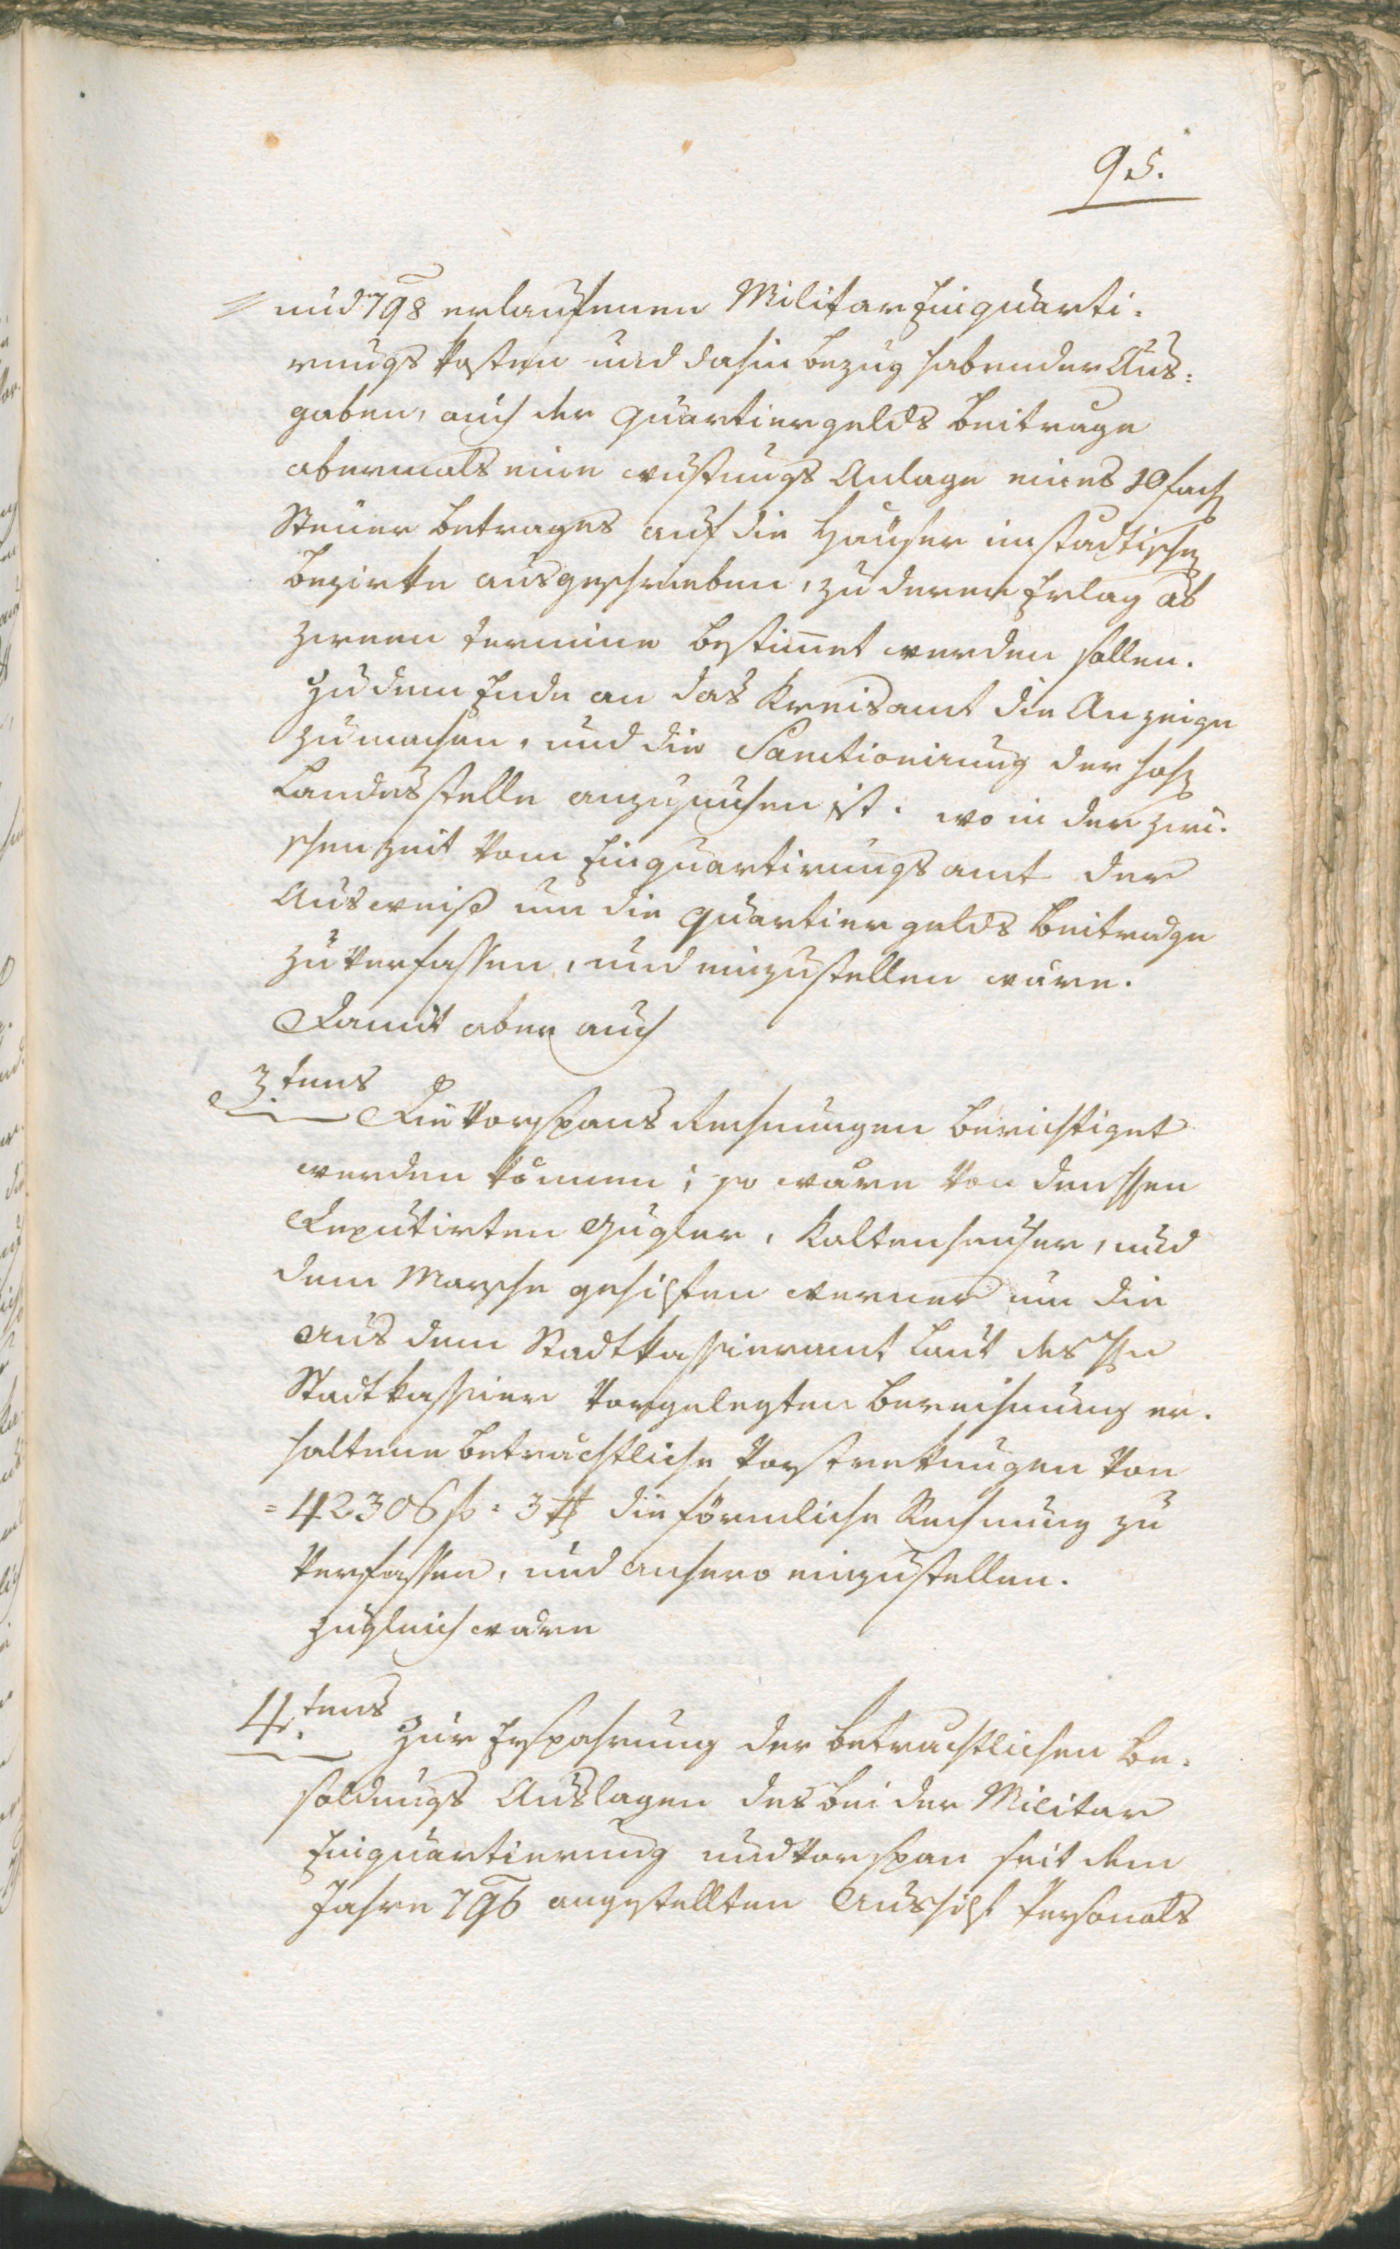 95.
und 798 erlaufenen Militar Einquarti-
rungs kosten und dahin bezug habender Aus-
gaben, auch der quartiergelds Beitrage
abermals eine Anlage eines 10fach
Steuer betrages auf die Häuser im stadtischen
bezirke ausgeschrieben, zu derer Erlag als
zween termine bestim̅et werden sollen.
Zu dem Ende an das Kreisamt die Anzeige
zu machen, und die Sanctionirung der hohen
Landesstelle anzusuchen ist. wo in der zwi-
schenzeit vom Einquartirungsamt der
Ausweiß um die quartiergelds Beitrage
zu verfassen, und einzustellen wäre.
Damit aber auch
3.tens
Die Vorspans Rechnungen berichtiget
werden können; so wäre von denen
Deputirten Gugler, Kaltenhauser, und
dem Marsche gehilfen Werner um die
aus dem Stadtkassieramt laut des H
Stadtkassier vorgelegten Berechnung er-
haltene betrachtliche Vorstreckungen von
= 42306 f = 3 x die förmliche Rechnung zu
verfassen, und anhero einzustellen.
Zugleich wäre
4.tens
Zur Ersparung der betrachtlichen Be-
soldungs Auslagen des bei der Militar
Einquartierung und Vorspan seit dem
Jahre 796 angestellten Aushilf Personals